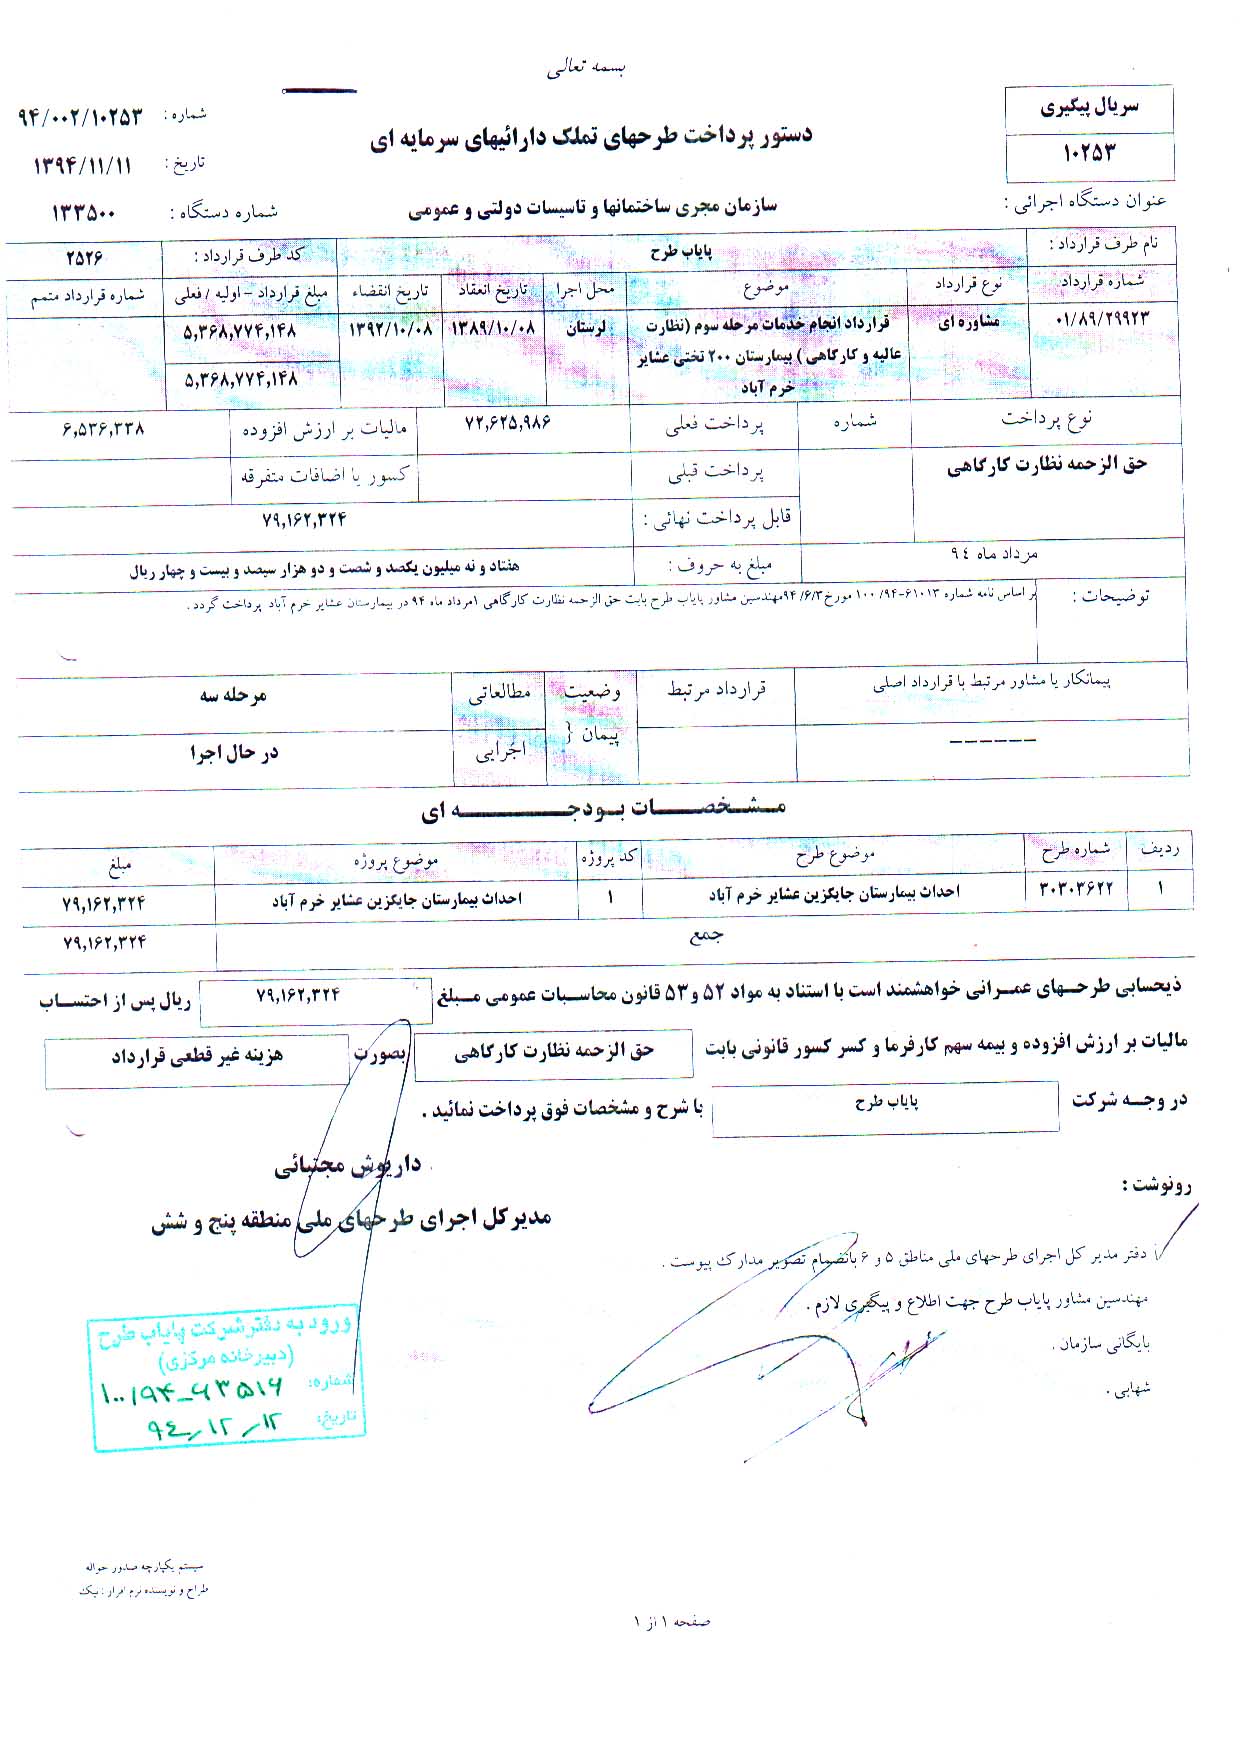 بسمه تعالی
سریال پیگیری
۱۰۲۵۳
دستور پرداخت طرحهای تملک دارائیهای سرمایه ای
شماره : ۹۴/۰۰۲/۱۰۲۵۳
تاریخ : ۱۳۹۴/۱۱/۱۱
عنوان دستگاه اجرائی : سازمان مجری ساختمانها و تاسیسات دولتی و عمومی شماره دستگاه : ۱۳۳۵۰۰
نام طرف قرارداد : پایاب طرح کد طرف قرارداد : ۲۵۲۶
شماره قرارداد نوع قرارداد موضوع محل اجرا تاریخ انعقاد تاریخ انقضاء مبلغ قرارداد - اولیه / فعلی شماره قرارداد متمم
۰۱/۸۹/۲۹۹۲۳ مشاوره ای قرارداد انجام خدمات مرحله سوم (نظارت لرستان ۱۳۸۹/۱۰/۰۸ ۱۳۹۲/۱۰/۰۸ ۵,۳۶۸,۷۷۴,۱۴۸
عالیه و کارگاهی ) بیمارستان ۲۰۰ تختی عشایر
خرم آباد ۵,۳۶۸,۷۷۴,۱۴۸
نوع پرداخت شماره پرداخت فعلی ۷۲,۶۲۵,۹۸۶ مالیات بر ارزش افزوده ۶,۵۳۶,۳۳۸
حق الزحمه نظارت کارگاهی پرداخت قبلی کسور یا اضافات متفرقه
قابل پرداخت نهائی : ۷۹,۱۶۲,۳۲۴
مرداد ماه ۹۴ مبلغ به حروف : هفتاد و نه میلیون یکصد و شصت و دو هزار سیصد و بیست و چهار ریال
توضیحات : بر اساس نامه شماره ۶۱۰۱۳-۹۴/ ۱۰۰ مورخ ۹۴/۶/۳مهندسین مشاور پایاب طرح بابت حق الزحمه نظارت کارگاهی ۱مرداد ماه ۹۴ در بیمارستان عشایر خرم آباد پرداخت گردد .
پیمانکار یا مشاور مرتبط با قرارداد اصلی قرارداد مرتبط وضعیت پیمان { مطالعاتی مرحله سه
------ اجرایی در حال اجرا
مـشـخصـات بـودجـه ای
ردیف شماره طرح موضوع طرح کد پروژه موضوع پروژه مبلغ
۱ ۳۰۳۰۳۶۲۲ احداث بیمارستان جایگزین عشایر خرم آباد ۱ احداث بیمارستان جایگزین عشایر خرم آباد ۷۹,۱۶۲,۳۲۴
جمع ۷۹,۱۶۲,۳۲۴
ذیحسابی طرحـهای عمـرانی خواهشمند است با استناد به مواد ۵۲ و ۵۳ قانون محاسبات عمومی مـبلغ ۷۹,۱۶۲,۳۲۴ ریال پس از احتسـاب
مالیات بر ارزش افزوده و بیمه سهم کارفرما و کسر کسور قانونی بابت حق الزحمه نظارت کارگاهی بصورت هزینه غیر قطعی قرارداد
در وجـه شرکت پایاب طرح با شرح و مشخصات فوق پرداخت نمائید .
داریوش مجتبائی
مدیرکل اجرای طرحهای ملی منطقه پنج و شش
رونوشت :
دفتر مدیر کل اجرای طرحهای ملی مناطق ۵ و ۶ بانضمام تصویر مدارک پیوست .
مهندسین مشاور پایاب طرح جهت اطلاع و پیگیری لازم .
بایگانی سازمان .
شهابی .
ورود به دفتر شرکت پایاب طرح
(دبیرخانه مرکزی)
شماره: ۱۰۰/۹۴-۶۳۵۱۶
تاریخ: ۹۴/۱۲/۱۲
سیستم یکپارچه صدور حواله
طراح و نویسنده نرم افزار : نیک
صفحه ۱ از ۱